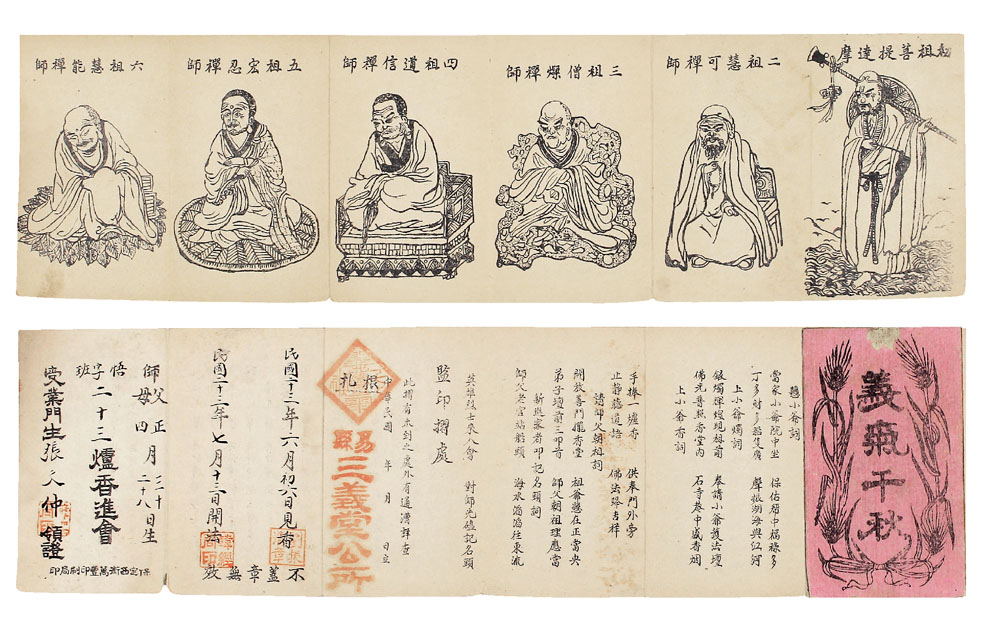 初祖菩提達摩
二祖慧可禪師
三祖僧燦禪師
四祖道信禪師
五祖宏忍禪師
六祖慧能禪師
義氣千秋
小爺詞
當家小爺院中坐 保佑中福祿多
丁多財多 聲振湖海與江河
上小爺燭詞
銀燭輝煌現爺前 奉請小爺護法壇
佛光普照香堂內 石寺巷中盛香烟
上小爺香詞
手捧一爐香 供奉門外旁
止靜聽道語 佛法降吉祥
請師父朝祖詞
開放善門擺香堂 祖爺懸在正當央
弟子前三叩首 師父朝祖理應當
新進家者叩記名頭詞
師父老官站船頭 海水滔滔往東流
英雄烈士來入會 對師先磕記名頭
監印摺處
此摺有未到之處外有通漕輯查
中華民國 年 月 日立
摺札
賜三義堂公所
民國二十三年六月初六日見香
民國二十三年七月十三日開法
不蓋章無效
師父 正月三十日生
師母 四月二十八日生
悟字班
二十三爐香進會
受業門生張文仲領證
保定西街萬豐印刷局印